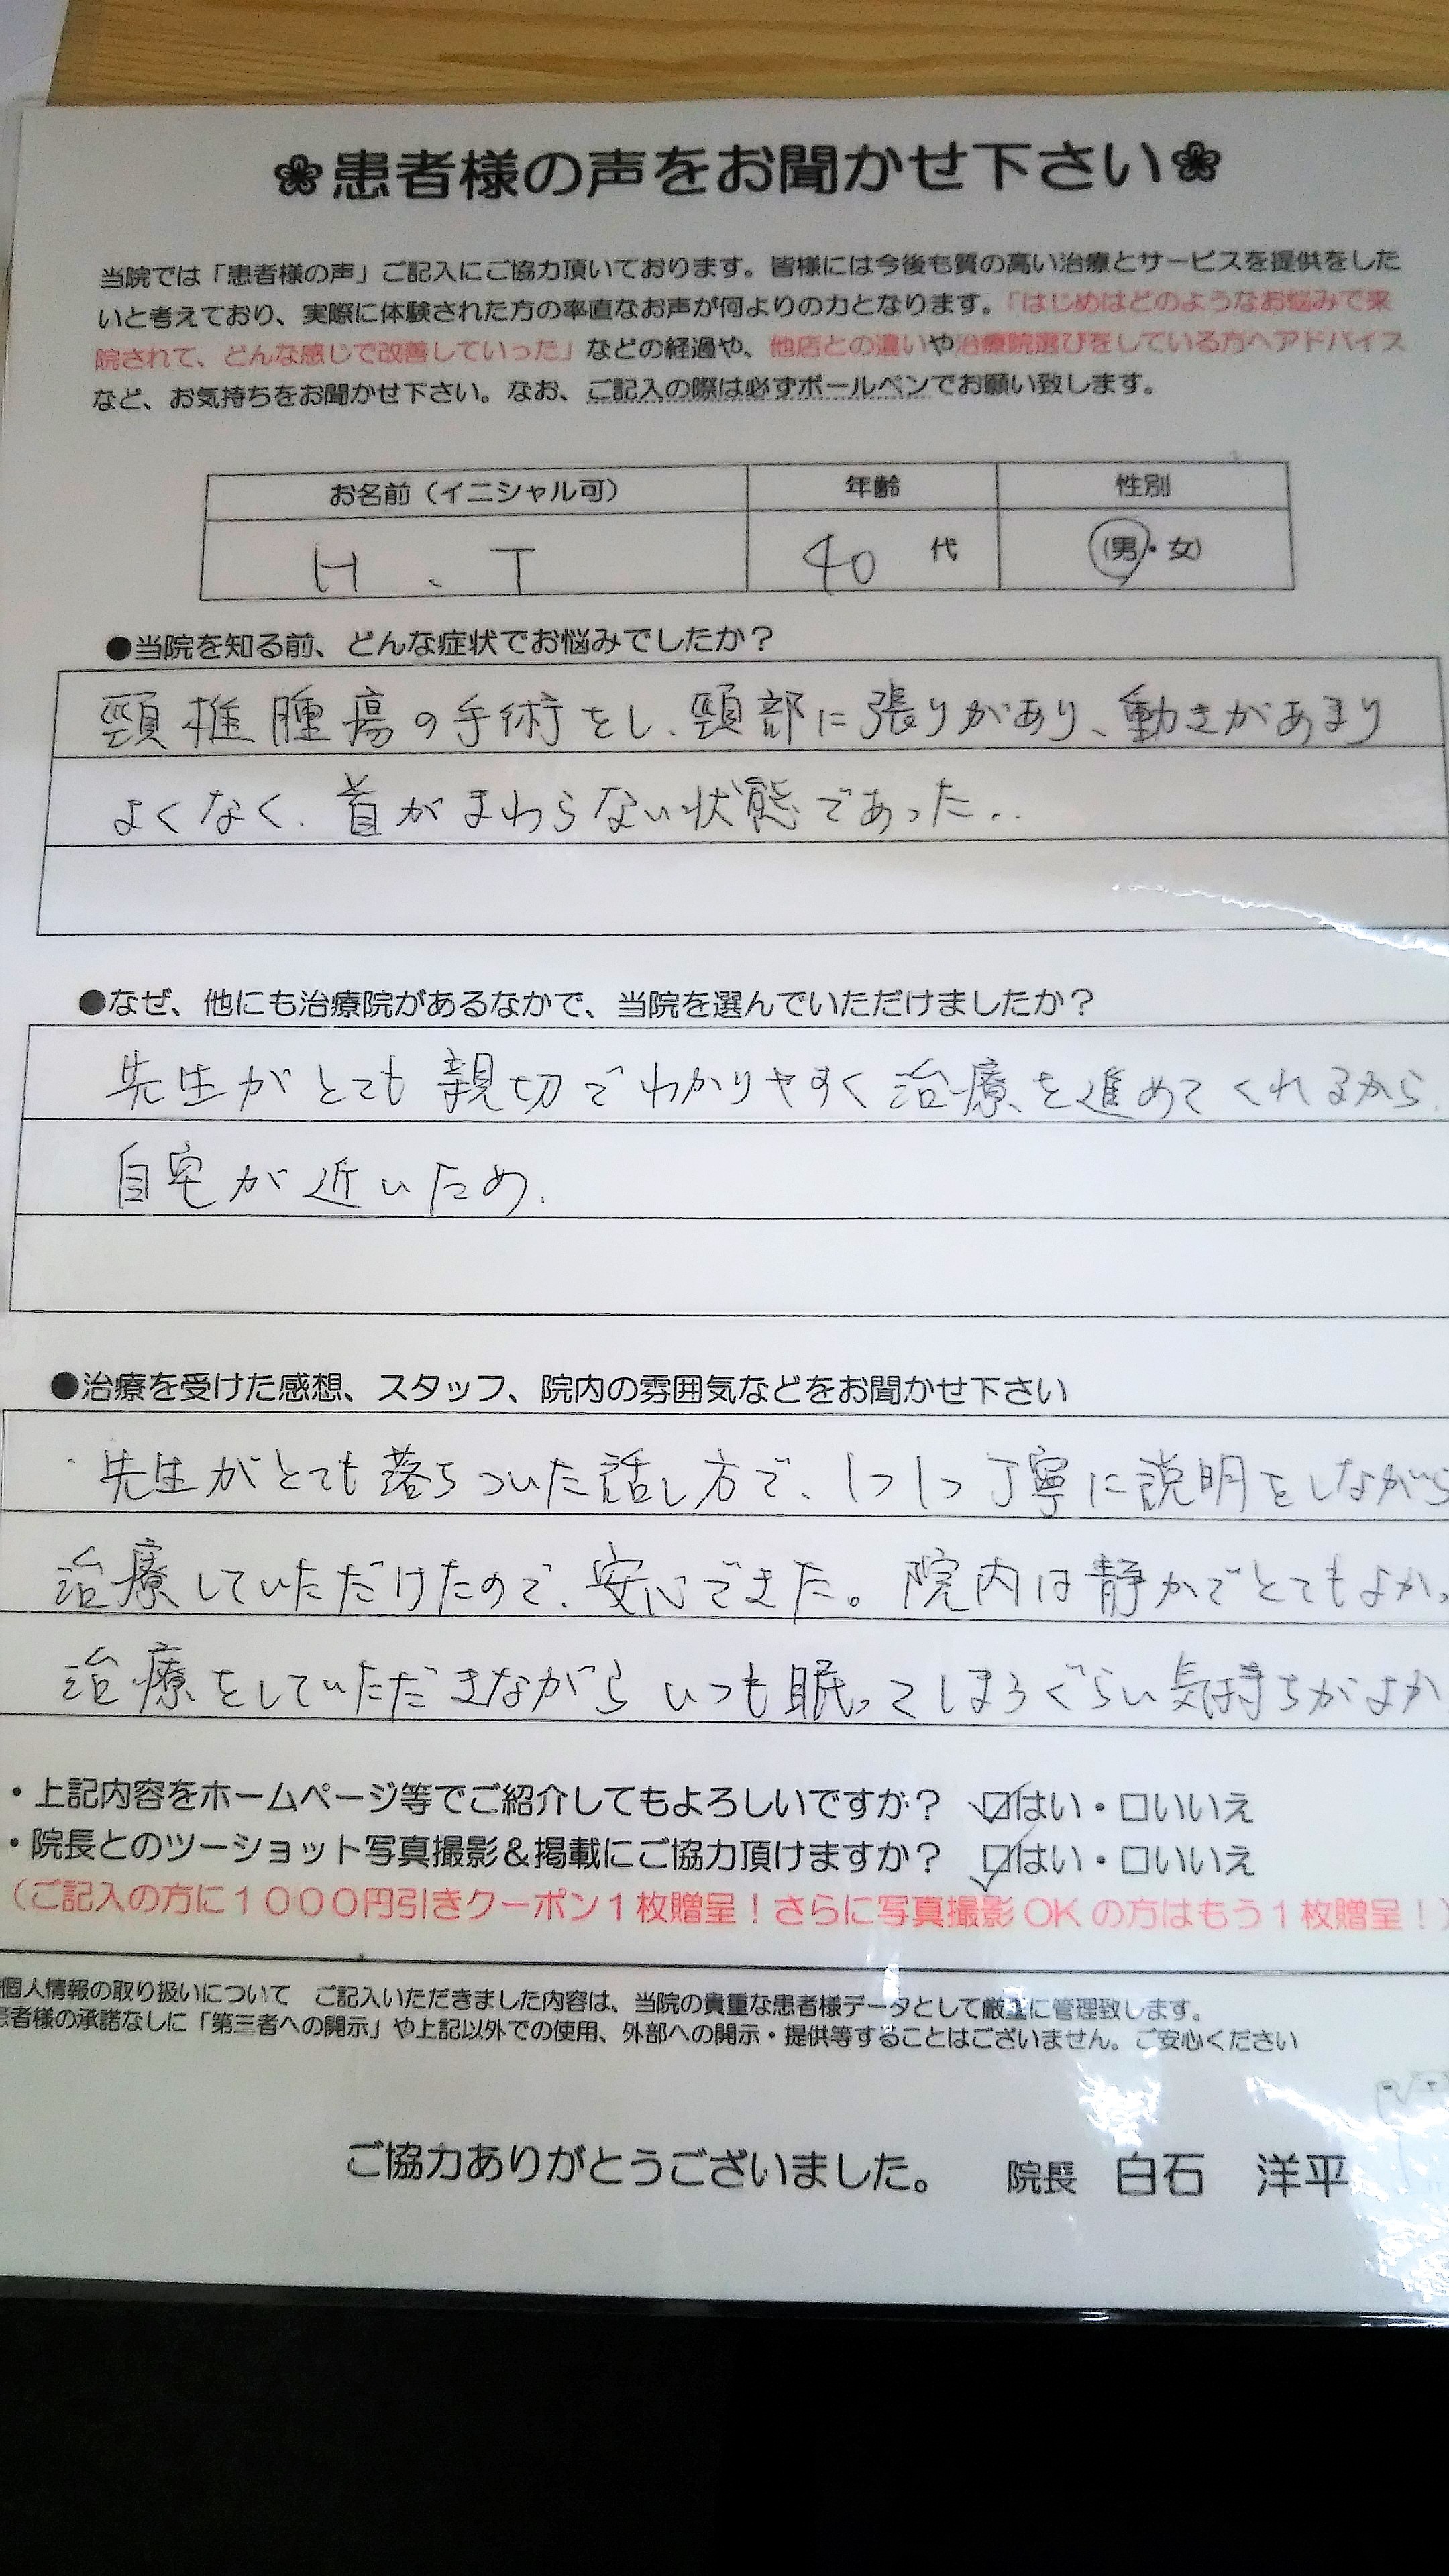 ❀患者様の声をお聞かせ下さい❀
当院では「患者様の声」ご記入にご協力頂いております。皆様には今後も質の高い治療とサービスを提供をした
いと考えており、実際に体験された方の率直なお声が何よりの力となります。「はじめはどのようなお悩みで来
院されて、どんな感じで改善していった」などの経過や、他店との違いや治療院選びをしている方へアドバイス
など、お気持ちをお聞かせ下さい。なお、ご記入の際は必ずボールペンでお願い致します。
お名前（イニシャル可） 年齢 性別
H . T 40 代 (男・女)
●当院を知る前、どんな症状でお悩みでしたか？
頸椎腫瘍の手術をし、頸部に張りがあり、動きがあまり
よくなく、首がまわらない状態であった..
●なぜ、他にも治療院があるなかで、当院を選んでいただけましたか？
先生がとても親切でわかりやすく治療を進めてくれるから、
自宅が近いため.
●治療を受けた感想、スタッフ、院内の雰囲気などをお聞かせ下さい
先生がとても落ちついた話し方で、1つ1つ丁寧に説明をしながら
治療していただけたので、安心できた。院内は静かでとてもよかっ
治療をしていただきながらいつも眠ってしまうぐらい気持ちがよか
・上記内容をホームページ等でご紹介してもよろしいですか？ ☑はい・□いいえ
・院長とのツーショット写真撮影＆掲載にご協力頂けますか？ ☑はい・□いいえ
（ご記入の方に１０００円引きクーポン１枚贈呈！さらに写真撮影OKの方はもう１枚贈呈！）
個人情報の取り扱いについて ご記入いただきました内容は、当院の貴重な患者様データとして厳重に管理致します。
患者様の承諾なしに「第三者への開示」や上記以外での使用、外部への開示・提供等することはございません。ご安心ください
ご協力ありがとうございました。 院長 白石 洋平